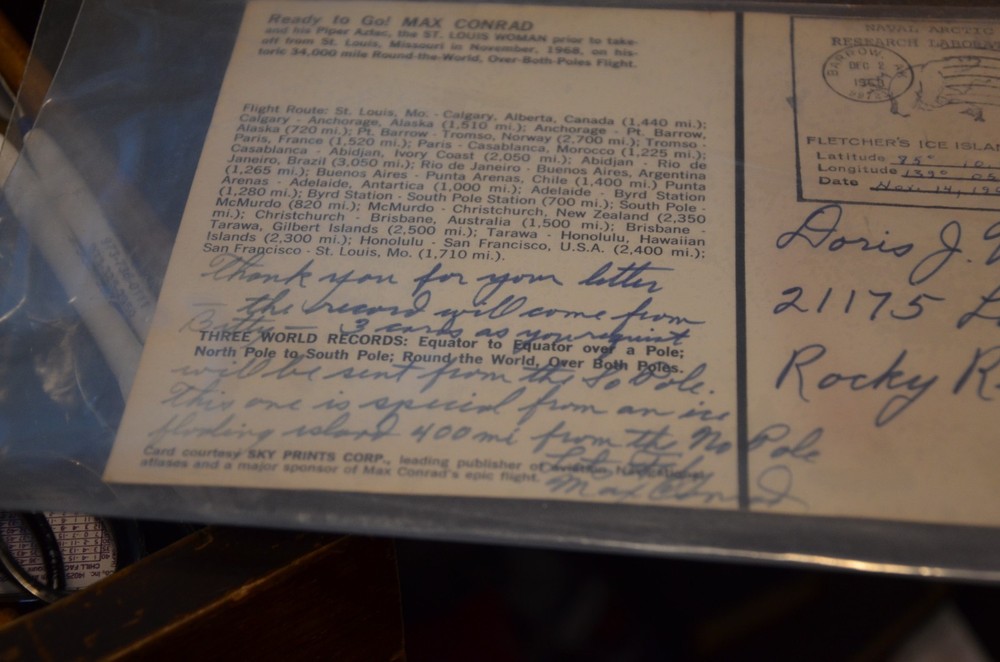 Ready to Go! MAX CONRAD
and his Piper Aztec, the ST. LOUIS WOMAN prior to take-
off from St. Louis, Missouri in November, 1968, on his-
toric 34,000 mile Round-the-World, Over-Both-Poles Flight.
Flight Route: St. Louis, Mo. - Calgary, Alberta, Canada (1,440 mi.);
Calgary - Anchorage, Alaska (1,510 mi.); Anchorage - Pt. Barrow,
Alaska (720 mi.); Pt. Barrow - Tromso, Norway (2,700 mi.); Tromso -
Paris, France (1,520 mi.); Paris - Casablanca, Morocco (1,225 mi.);
Casablanca - Abidjan, Ivory Coast (2,050 mi.); Abidjan - Rio de
Janeiro, Brazil (3,050 mi.); Rio de Janeiro - Buenos Aires, Argentina
(1,265 mi.); Buenos Aires - Punta Arenas, Chile (1,400 mi.) Punta
Arenas - Adelaide, Antartica (1,000 mi.); Adelaide - Byrd Station
(1,280 mi.); Byrd Station - South Pole Station (700 mi.); South Pole -
McMurdo (820 mi.); McMurdo - Christchurch, New Zealand (2,350
mi.); Christchurch - Brisbane, Australia (1,500 mi.); Brisbane -
Tarawa, Gilbert Islands (2,500 mi.); Tarawa - Honolulu, Hawaiian
Islands (2,300 mi.); Honolulu - San Francisco, U.S.A. (2,400 mi.);
San Francisco - St. Louis, Mo. (1,710 mi.).
Thank you for your letter
— the record will come from
Betty — 3 cards as you request
THREE WORLD RECORDS: Equator to Equator over a Pole;
North Pole to South Pole; Round the World, Over Both Poles.
will be sent from the So Pole.
This one is special from an ice
floating island 400 mi from the No Pole
Card courtesy SKY PRINTS CORP., leading publisher of aviation
atlases and a major sponsor of Max Conrad's epic flight.
Max Conrad
NAVAL ARCTIC
RESEARCH LABORA
BARROW, AK
DEC 2
FLETCHER'S ICE ISLAN
Latitude 85°
Longitude 139°
Date Nov. 14, 19
Doris J.
21175
Rocky R